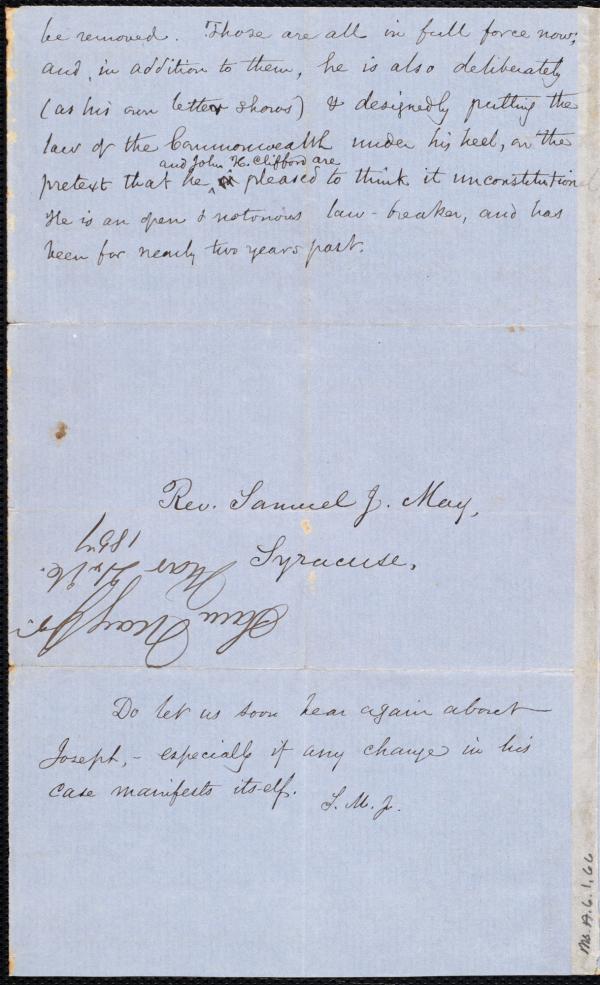 be removed. Those are all in full force now;
and, in addition to them, he is also deliberately
(as his own letter shows) & designedly putting the
law of the Commonwealth under his heel, on the
and John H. Clifford are
pretext that he pleased to think it unconstitution
He is an open & notorious law-breaker, and has
been for nearly two years past.
Rev. Samuel J. May,
Syracuse,
Sam May Jr.
Mar
1857
Do let us soon hear again about
Joseph,- especially if any change in his
case manifests itself.
S. M. Jr.
Ms. A. 6. 1, 66